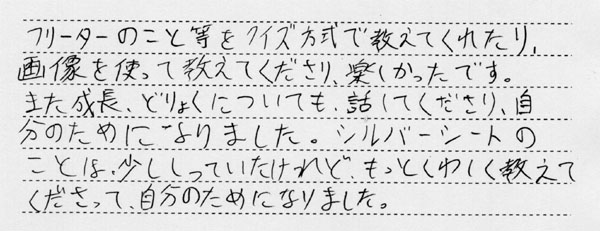 フリーターのこと等をクイズ方式で教えてくれたり、
画像を使って教えてくださり、楽しかったです。
また成長、どりょくについても、話してくださり、自
分のためになりました。シルバーシートの
ことは、少ししっていたけれど、もっとくわしく教えて
くださって、自分のためになりました。